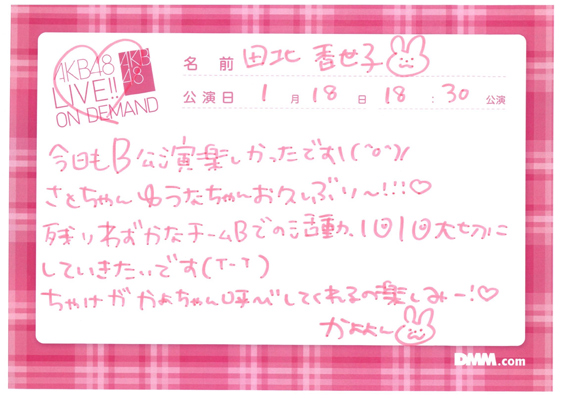 AKB48
LIVE!!
ON DEMAND
AKB
48
名前 田北 香世子
公演日 1月18日 18:30 公演
今日もB公演楽しかったです\(^o^)/
さとちゃんゆうなちゃんお久しぶり〜!!!♡
残りわずかなチームBでの活動、1回1回大切に
していきたいです(T-T)
ちゃけがかよちゃん呼びしてくれるの楽しみー!♡
かよよん
DMM.com